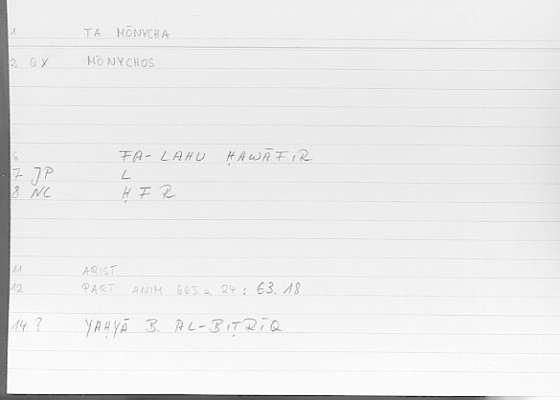 1 TA MŌNYCHA
2 QX MŌNYCHOS
6 FA-LAHU ḤAWĀFIR
7 JP L
8 NC ḤFR
11 ARIST
12 PART ANIM 663 a 24 : 63.18
14 ? YAḤYĀ B. AL-BIṬRĪQ